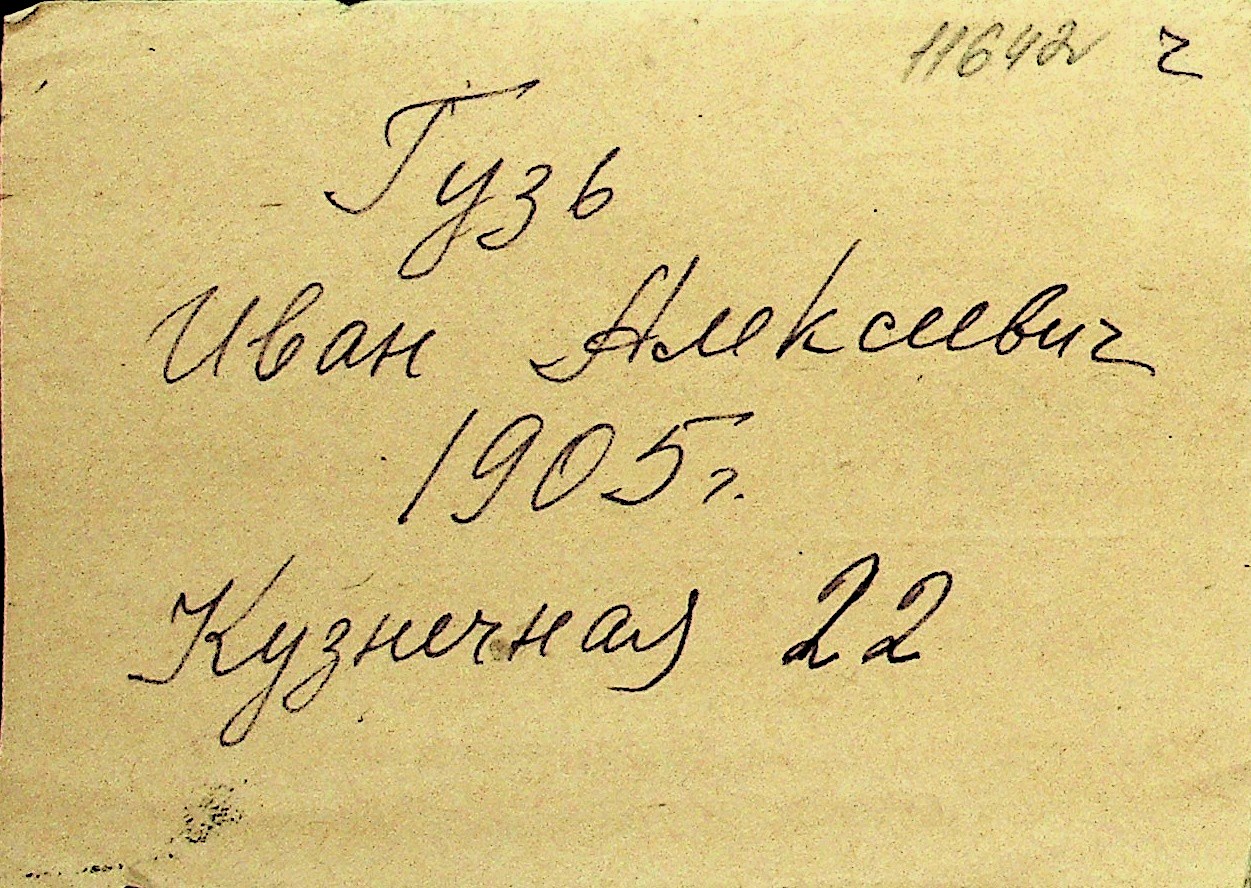 11642 ч
Гузь
Иван Алексеевич
1905г.
Кузнечная 22